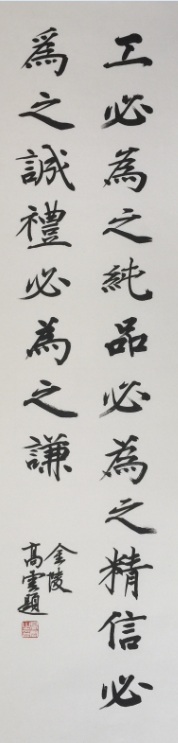 工必為之純品必為之精信必
爲之誠禮必為之謙
金陵
高雲題